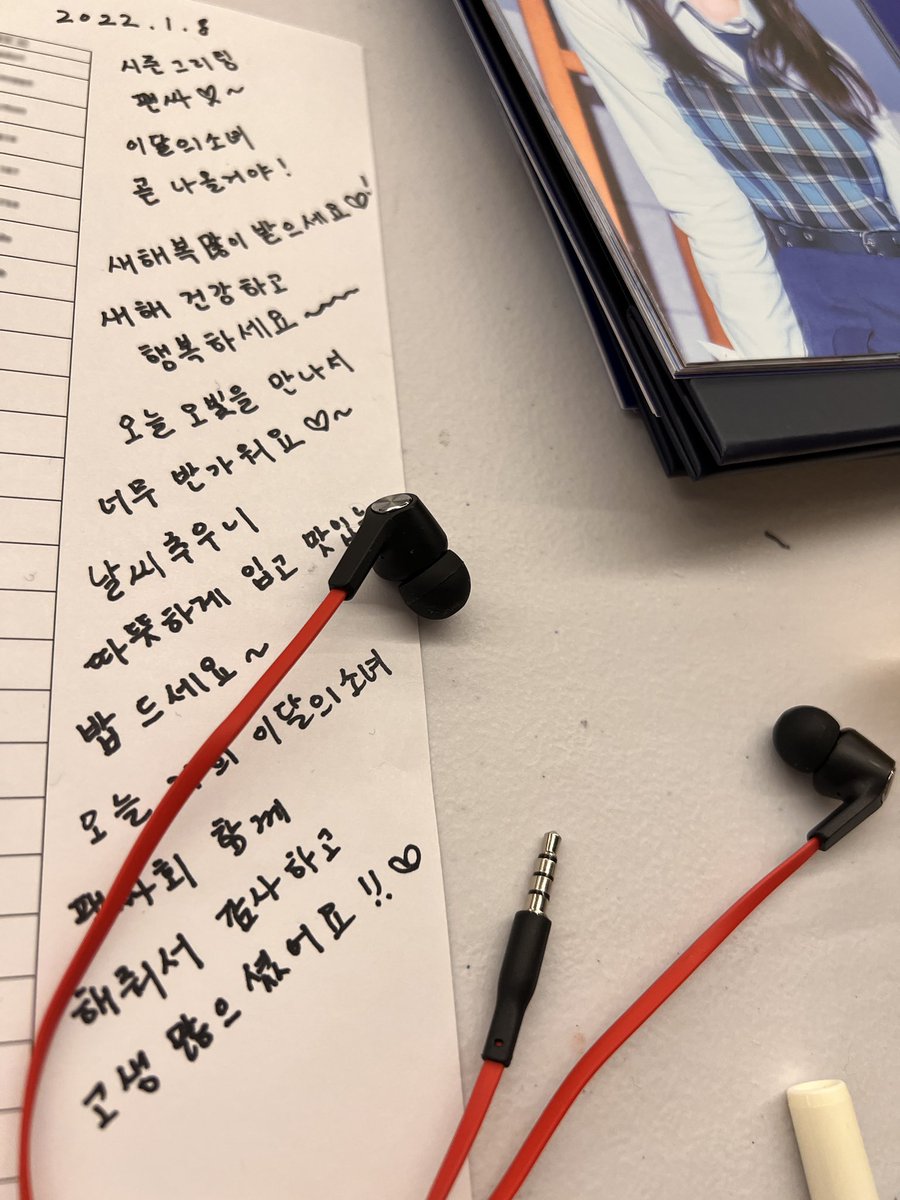 2022.1.8
시즌그리팅
팬싸♡~
이달의소녀
곧 나올거야!
새해복많이 받으세요♡!
새해 건강하고
행복하세요~~
오늘 오빛을 만나서
너무 반가워요♡~
날씨추우니
따뜻하게 입고 맛있는
밥 드세요~
오늘 이달의소녀
팬싸회 함께
해줘서 감사하고
고생 많으셨어요!!♡